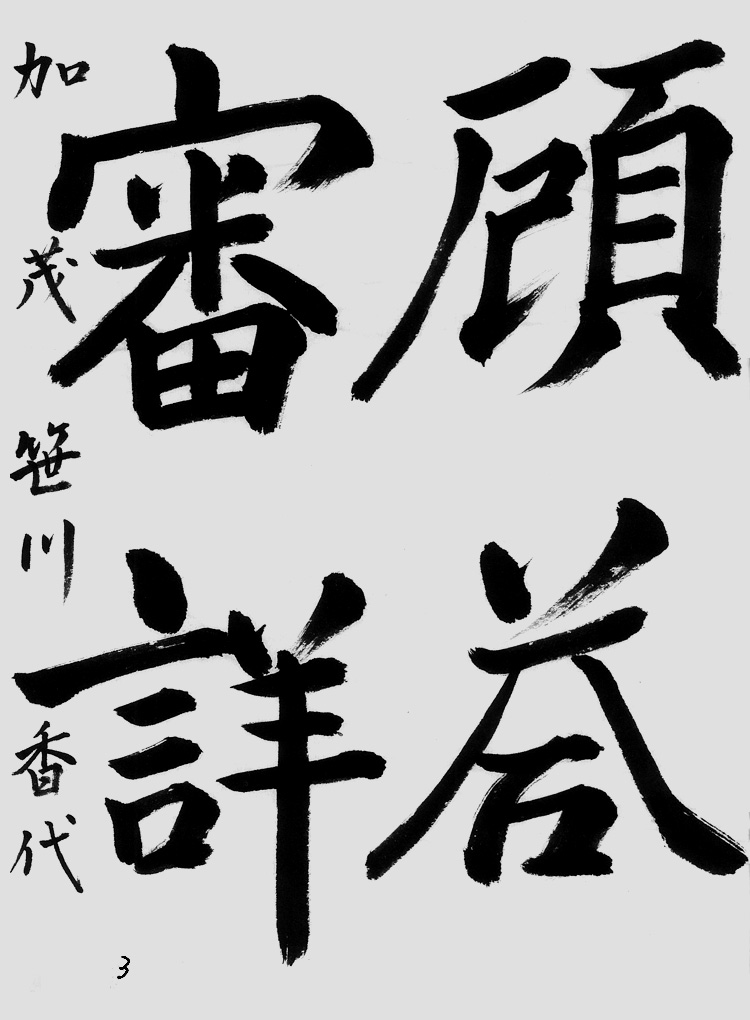 顧答
審詳
加茂 笹川香代
3